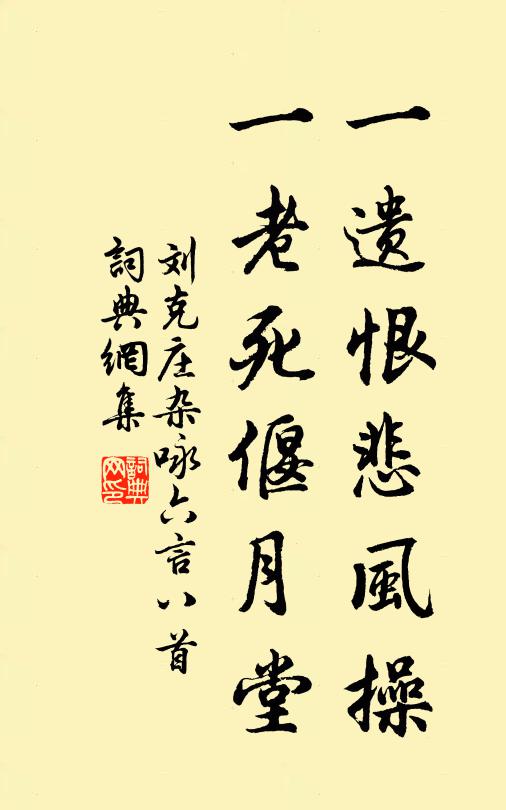 一遗恨悲風操
一老死偃月堂
刘克庄杂咏六言八首
詞典網集
詞典網印